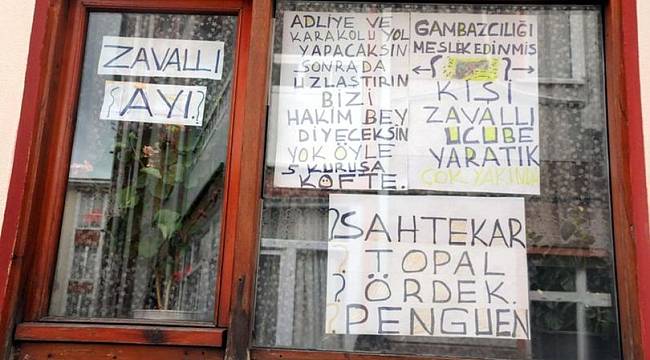 ZAVALLI
AYI.
ADLİYE VE
KARAKOLU YOL
YAPACAKSIN
SONRADA
UZLAŞTIRIN
BİZİ
HAKİM BEY
DİYECEKSİN
YOK ÖYLE
5 KURUŞA
KÖFTE.
GAMBAZCILIĞI
MESLEK EDİNMİŞ
KİŞİ
ZAVALLI
UCUBE
YARATIK
ÇOK YAKINDA
SAHTEKAR
? TOPAL
? ÖRDEK.
? PENGUEN